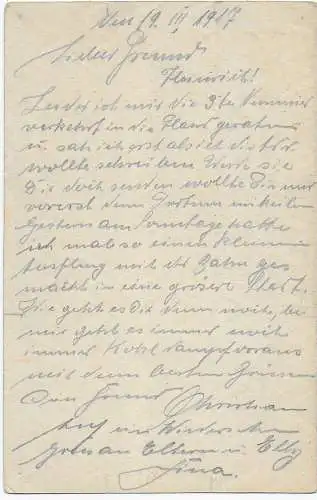 Den 19. III. 1917
Lieber Freund
Heinrich!
Leider ich mir die 3te Nummer
verkehrt in die Hand geraten
u. sah ich erst als ich die Adr
wollte schreiben werde sie
Dir doch senden wollte Dir nur
vorerst dem Datum mitteilen
Gestern am Sonntage hatte
ich mal so einen kleinen
Ausflug mit der Bahn ge
macht in eine grösere Stadt.
Wie geht es Dir denn noch, bei
mir geht es immer noch
immer Kohl dampf voraus
mit dem besten Grüssen
Dein Freund Christian
Auf ein Wiedersehn
grüss an Eltern u. Elly
Lina.